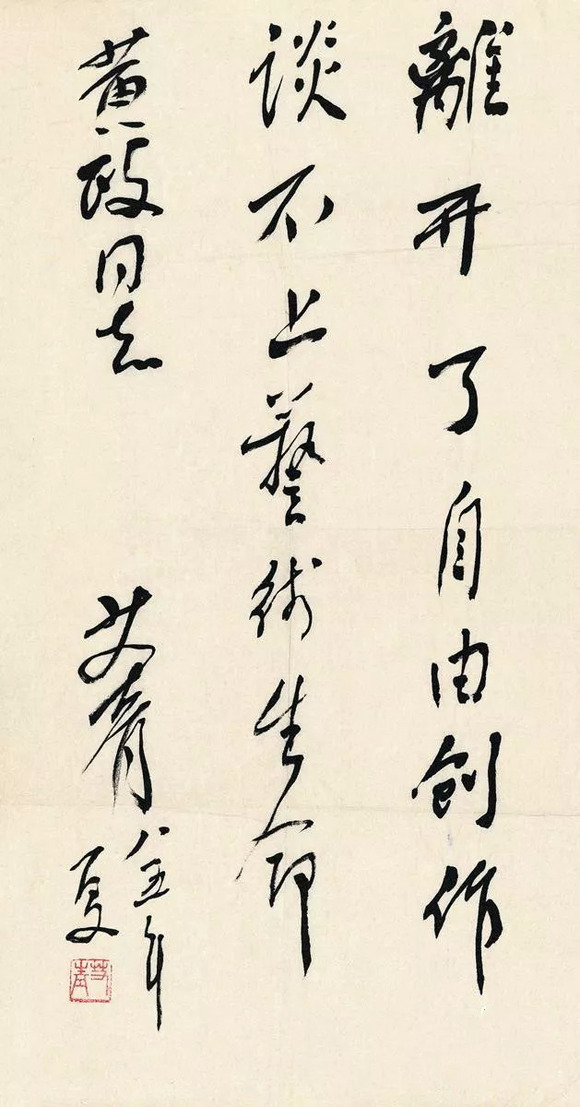 離开了自由创作
谈不上藝術生命
黄政同志
艾青
八五年
夏
艾青